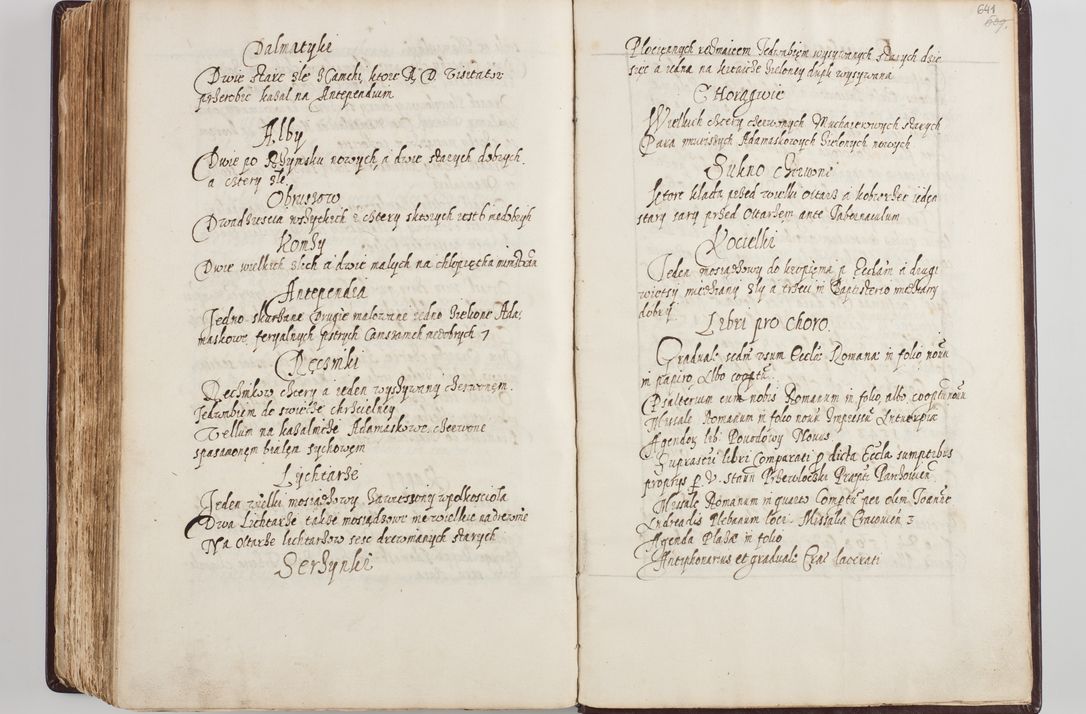 Dalmatyki
Dwie stare złe Hamchi, ktore R. D. Visitator
przerobic kazal na Antependium
Alby
Dwie po Rzymsku nowych, a dwie starych dobrych
a cztery złe
Obrussow
Dwadziescia wszyckich z cztery ktorych iest 6 niedobrych
Komży
Dwie wielkich złech a dwie małych na chłopięcha
Antependia
Jedno skurzane Drugie malowane iedno Zielone Ada
maskowe feryalnych pstrych niedobrych 7
Ręczniki
Ręcznikow cztery a ieden wyszywany czerwonem
Jedwabiem do swieche chrzcielney
Vellum na kazalniche Adamaskowe czerwone
spasamonem białem sychowem
Lychtarze
Jeden wielki mosiądzowy Zawieszony wpolkosciola
Dwa Lichtarze takze mosiądzowe niewielkie nadrewnie
Na Oltarze lichtarzow szesc drewnianych starych
Serzynki
641
639.
Płociennych rozmaitem Jedwabiem wyszywanych starych dzie
sięc a iedna na kitaiche Zieloney dupli wyszywana
CHorągwie
Wielkich cztery czerwonych Muchaierowych starych
Para mnieyszych Adamaskowych Zielonych nowych
Sukno czerwone
Ktore klada przed wielki oltarz a kobierzec ieden
stary szary przed Oltarzem ante Tabernaculum
Kocielki
Jeden mosiądzowy do kropienia p. Ecclam a drugi
wietszy miedziany zły a trzeci in Baptisterio miedziany
dobry.
Libri pro choro.
Graduale sedm usum Eccliæ Romanæ in folio novu
in papiro, Albo cooptu
Psalterium cum nobis Romanum in folio, albo, cooptu novu
Missale Romanum in folio novu Impressu Antuerpiæ
Agendoz lib: Povodowy Novus
Suprascri libri Comparati p dicta Eccla sumptibus
proprys p V. stanu Przewloczki Præpti Parchovien
Missale Romanum in quarto Comptu per olim Joanne
Andreadis Plebanum loci. Missalia Cracovien 3
Agenda Pladæ in folio
Antiphonarius et graduale Crac lacerati